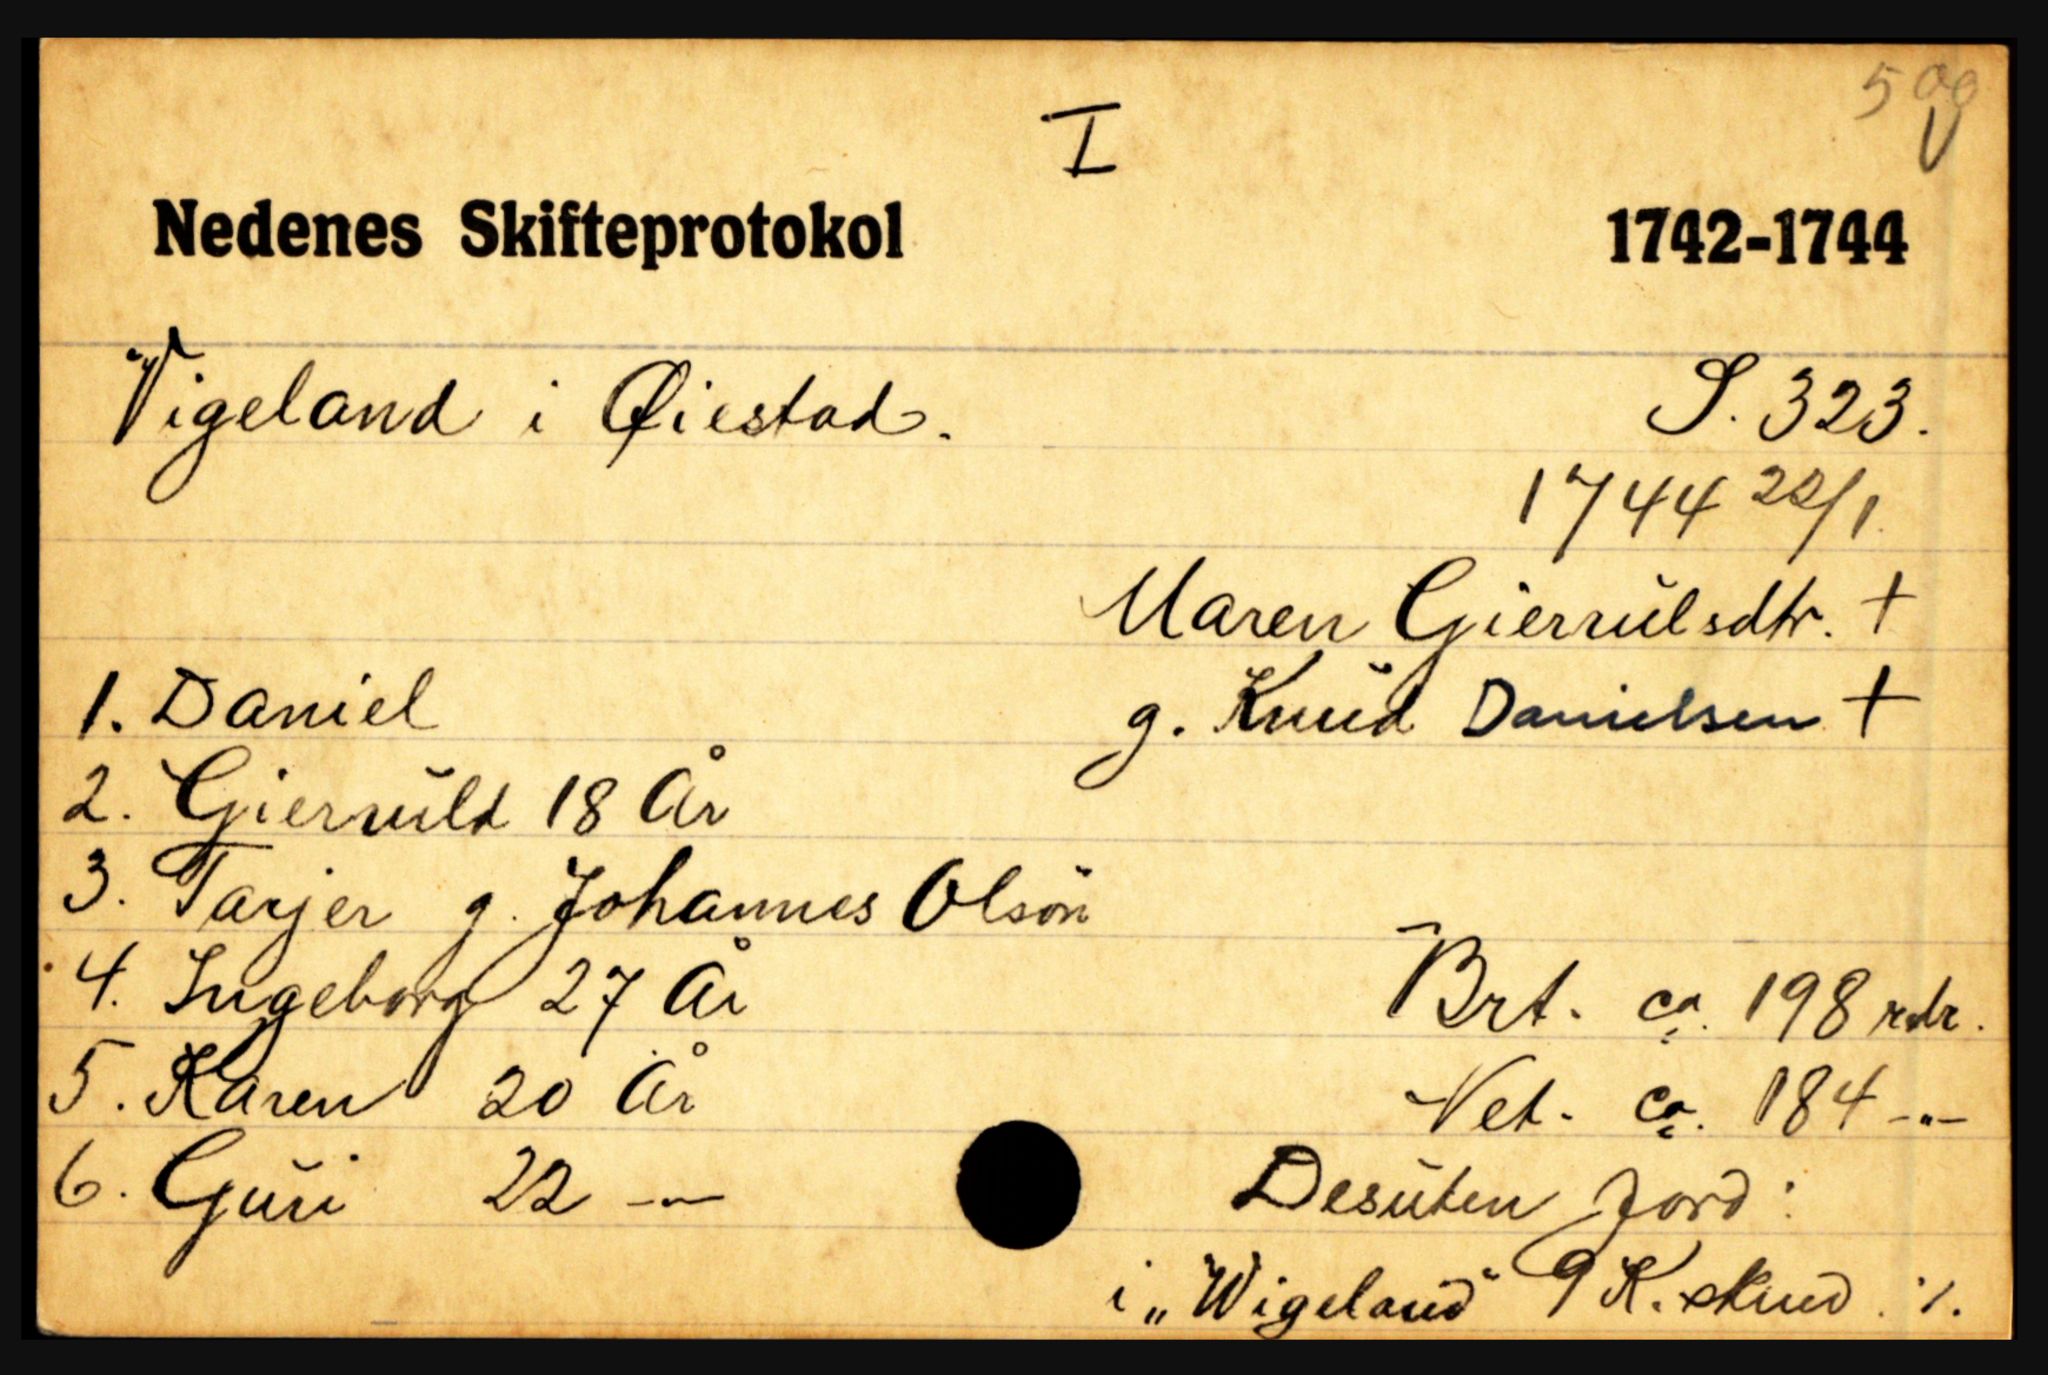 I
Nedenes Skifteprotokol 1742-1744
Vigeland i Øiestad. S. 323.
1744 22/1.
Maren Gierrulsdtr. +
1. Daniel g. Knud Danielsen +
2. Gierruld 18 År
3. Tarjer g. Johannes Olsøn
4. Ingeborg 27 År Brt. ca. 198 rdr.
5. Karen 20 År Net. ca. 184 -"-
6. Guri 22 -"- Desuten Jord:
i „Wigeland" 9 K. skind ./.